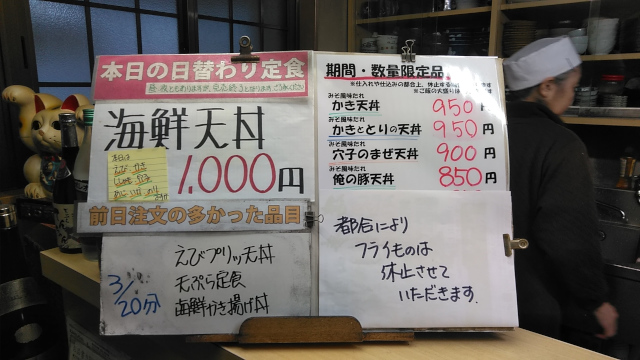 本日の日替わり定食
海鮮天丼
本日は
えび かき
1,000円
前日注文の多かった品目
3/
20分
えびプリッ天丼
天ぷら定食
海鮮かき揚げ丼
期間・数量限定品
みそ風味だれ
かき天丼 950円
みそ風味だれ
かきととりの天丼 950円
みそ風味だれ
穴子のまぜ天丼 900円
みそ風味だれ
俺の豚天丼 850円
都合により
フライものは
休止させて
いただきます.